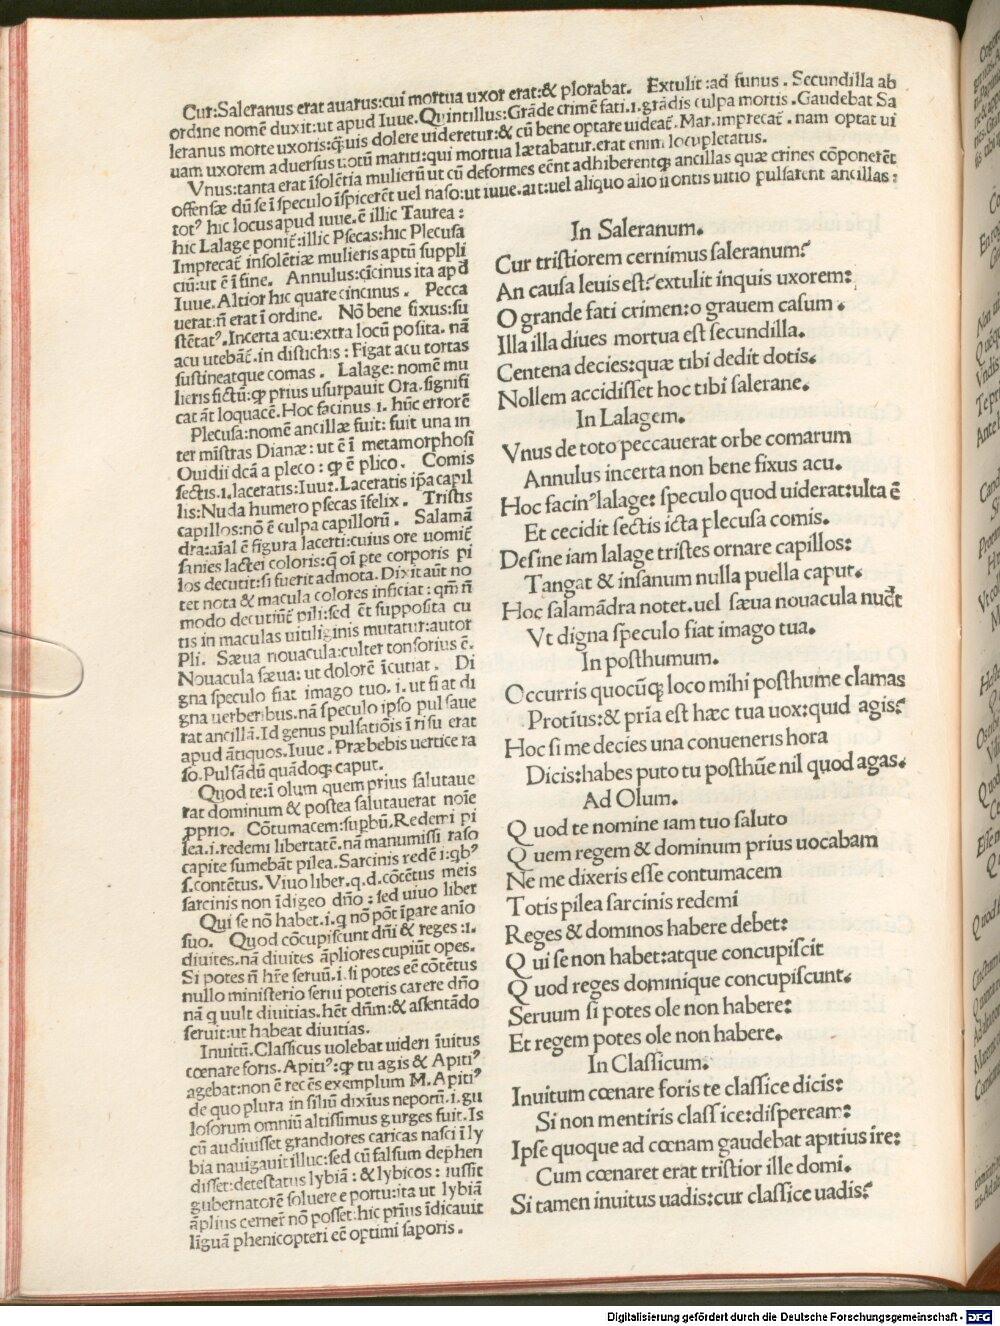 Cur: Saleranus erat auarus: cui mortua uxor erat: & plorabat. Extulit: ad funus. Secundilla ab
ordine nomē duxit: ut apud Iuue. Quintillus: Grāde crimē fati. i. grādis culpa mortis. Gaudebat Sa
leranus morte uxoris: q̄uis dolere uideretur: & cū bene optare uideat̄. Mar. imprecat̄. nam optat ui
uam uxorem aduersus uotū mariti: qui mortua lætabatur. erat enim locupletatus.
Vnus: tanta erat īsolētia mulierū ut cū deformes eēnt adhiberentq; ancillas quæ crines cōponerēt
offensæ dū se ī speculo īspicerēt uel naso: ut iuue. ait: uel aliquo alio frontis uitio pulsarent ancillas:
totꝰ hic locus apud iuue. ē illic Taurea:
hic Lalage ponit̄: illic Psecas: hic Plecusa
Imprecat̄ insolētiæ mulieris aptū suppli
ciū: ut ē ī fine. Annulus: cīcinus ita apd
Iuue. Altior hic quare cincinus. Pecca
uerat: n̄ erat ī ordine. Nō bene fixus: su
stētatꝰ. Incerta acu: extra locū posita. nā
acu utebāt̄. in distichis: Figat acu tortas
sustineatque comas. Lalage: nomē mu
lieris fictū: qp prius usurpauit Ora. signifi
cat āt loquacē. Hoc facinus. i. hūc errorē
Plecusa: nomē ancillæ fuit: fuit una in
ter mīstras Dianæ: ut ē ī metamorphosi
Ouidii dcā a pleco: qp ē plico. Comis
sectis. i. laceratis: Iuu2. Laceratis īpa capil
lis: Nuda humero psecas īfelix. Tristis
capillos: nō ē culpa capillorū. Salamā
dra: aīal ē figura lacerti: cuius ore uomit̄
sanies lactei coloris: q̄ oī pte corporis pi
los decutit: si fuerit admota. Dixit aūt no
tet nota & macula colores inficiat: qm̄ n̄
modo decutiūt̄ pili: sed ēt supposita cu
tis in maculas uitiliginis mutatur: autor
Pli. Sæua nouacula: culter tonsorius ē.
Nouacula sæua: ut dolorē īcutiat. Di
gna speculo fiat imago tuo. i. ut fiat di
gna uerberibus. nā speculo ipso pulsaue
rat ancillā. Id genus pulsatiōis ī risu erat
apud ātiquos. Iuue. Præbebis uertice ra
so. Pulsādū quādoq; caput.
Quod te: ī olum quem prius salutaue
rat dominum & postea salutauerat noīe
pprio. Cōtumacem: supbū. Redemi pi
lea. i. redemi libertatē. nā manumissi raso
capite sumebāt pilea. Sarcinis redē i: qbꝰ
s. contētus. Viuo liber. q. d. cōtētus meis
sarcinis non īdigeo dn̄o: sed uiuo liber
Qui se nō habet. i. q nō pōt īpare anīo
suo. Quod cōcupiscunt dn̄i & reges: i.
diuites. nā diuites āpliores cupiūt opes.
Si potes n̄ hr̄e seruū. i. si potes eē cōtētus
nullo ministerio serui poteris carere dn̄o
nā q uult diuitias. hēt dn̄m: & assentādo
seruit: ut habeat diuitias.
Inuitū. Classicus uolebat uideri īuitus
cœnare foris. Apitiꝰ: qp tu agis & Apitiꝰ
agebat: non ē recēs exemplum M. Apitiꝰ
de quo plura in filiū dixīus neporū. i. gu
losorum omniū altissimus gurges fuit. Is
cū audiuisset grandiores caricas nasci ī ly
bia nauigauit illuc: sed cū falsum dephen
disset: detestatus lybiā: & lybicos: iussit
gubernatorē soluere e portu: ita ut lybiā
āplius cerner̄ nō posset: hic prīus īdicauit
līguā phenicopteri eē optimi saporis.
In Saleranum.
Cur tristiorem cernimus saleranum?
An causa leuis est? extulit inquis uxorem:
O grande fati crimen: o grauem casum.
Illa illa diues mortua est secundilla.
Centena decies: quæ tibi dedit dotis.
Nollem accidisset hoc tibi salerane.
In Lalagem.
Vnus de toto peccauerat orbe comarum
Annulus incerta non bene fixus acu.
Hoc facinꝰ lalage: speculo quod uiderat: ulta ē
Et cecidit sectis icta plecusa comis.
Desine iam lalage tristes ornare capillos:
Tangat & insanum nulla puella caput.
Hoc salamādra notet. uel sæua nouacula nud̄t
Vt digna speculo fiat imago tua.
In posthumum.
Occurris quocūq; loco mihi posthume clamas
Protīus: & prīa est hæc tua uox: quid agis?
Hoc si me decies una conueneris hora
Dicis: habes puto tu posthūe nil quod agas.
Ad Olum.
Quod te nomine iam tuo saluto
Quem regem & dominum prius uocabam
Ne me dixeris esse contumacem
Totis pilea sarcinis redemi
Reges & dominos habere debet:
Qui se non habet: atque concupiscit
Quod reges dominique concupiscunt.
Seruum si potes ole non habere:
Et regem potes ole non habere.
In Classicum.
Inuitum cœnare foris te classice dicis:
Si non mentiris classice: dispeream:
Ipse quoque ad cœnam gaudebat apitius ire:
Cum cœnaret erat tristior ille domi.
Si tamen inuitus uadis: cur classice uadis?
Digitalisierung gefördert durch die Deutsche Forschungsgemeinschaft - DFG